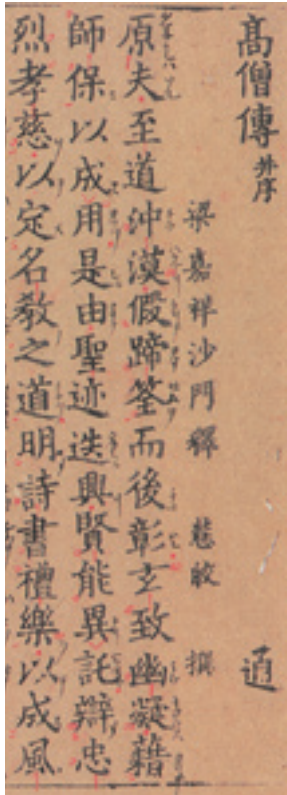 高僧傳 并序 通
梁嘉祥沙門釋 慧皎 撰
原夫至道沖漠假蹄筌而後彰玄致幽凝藉
師保以成用是由聖迹迭興賢能異託辯忠
烈孝慈以定名敎之道明詩書禮樂以成風